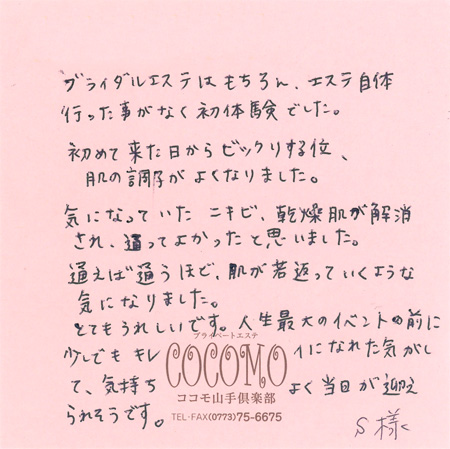 ブライダルエステはもちろん、エステ自体
行った事がなく初体験でした。
初めて来た日からビックリする位、
肌の調子がよくなりました。
気になっていた ニキビ、乾燥肌が解消
され、通ってよかったと思いました。
通えば通うほど、肌が若返っていくような
気になりました。
とてもうれしいです。人生最大のイベントの前に
少しでも キレイになれた気がし
て、気持ちよく当日が迎え
られそうです。
S様
プライベートエステ
COCOMO
ココモ山手倶楽部
TEL・FAX(0773)75-6675